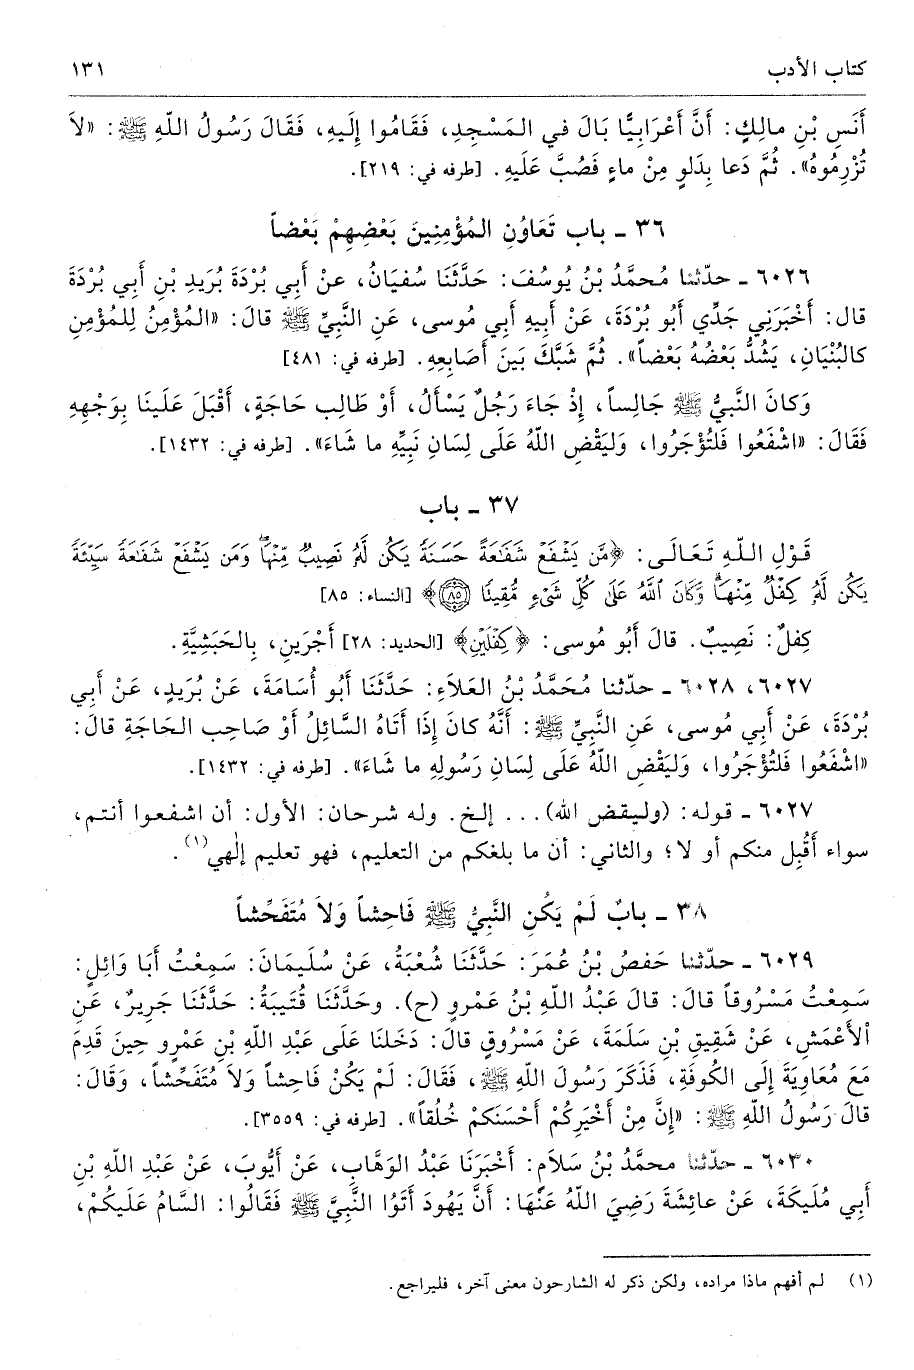 كتاب الأدب ١٣١
أَنَسِ بْنِ مالِكٍ: أَنَّ أَعْرَابِيًّا بَالَ في المَسْجِدِ، فَقَامُوا إِلَيهِ، فَقَالَ رَسُولُ اللّهِ ﷺ: «لاَ
تُزْرِمُوهُ». ثُمَّ دَعا بِدَلوٍ مِنْ ماءٍ فَصُبَّ عَلَيهِ. [طرفه في: ٢١٩].
٣٦ ـ باب تَعَاوُنِ المُؤْمِنِينَ بَعْضِهِمْ بَعْضاً
٦٠٢٦ ـ حدّثنا مُحمَّدُ بْنُ يُوسُفَ: حَدَّثَنَا سُفيَانُ، عنْ أَبِي بُرْدَةَ بُرَيدِ بْنِ أَبِي بُرْدَةَ
قال: أَخْبَرَنِي جَدِّي أَبُو بُرْدَةَ، عَنْ أَبِيهِ أَبِي مُوسى، عَنِ النَّبِيِّ ﷺ قالَ: «المُؤْمِنُ لِلمُؤْمِنِ
كالبُنْيَانِ، يَشُدُّ بَعْضُهُ بَعْضاً». ثُمَّ شَبَّكَ بَينَ أَصَابِعِهِ. [طرفه في: ٤٨١]
وَكانَ النَّبِيُّ ﷺ جَالِساً، إِذْ جَاءَ رَجُلٌ يَسْأَلُ، أَوْ طَالِب حَاجَةٍ، أَقْبَلَ عَلَينَا بِوَجْهِهِ
فَقَالَ: «اشْفَعُوا فَلتُؤْجَرُوا، وَليَقْضِ اللّهُ عَلَى لِسَانِ نَبِيِّهِ ما شَاءَ». [طرفه في: ١٤٣٢].
٣٧ ـ باب
قَوْلِ اللّهِ تَعَالَى: ﴿مَّن يَشْفَعْ شَفَٰعَةً حَسَنَةً يَكُن لَّهُۥ نَصِيبٌ مِّنْهَاۖ وَمَن يَشْفَعْ شَفَٰعَةً سَيِّئَةً
يَكُن لَّهُۥ كِفْلٌ مِّنْهَاۗ وَكَانَ ٱللَّهُ عَلَىٰ كُلِّ شَىْءٍ مُّقِيتًا ۝٨٥﴾ [النساء: ٨٥]
كِفلٌ: نَصِيبٌ. قالَ أَبُو مُوسى: ﴿كِفْلَيْنِ﴾ [الحديد: ٢٨] أَجْرَينِ، بِالحَبَشِيَّةِ.
٦٠٢٧، ٦٠٢٨ ـ حدّثنا مُحَمَّدُ بْنُ العَلاَءِ: حَدَّثَنَا أَبُو أُسَامَةَ، عَنْ بُرَيدٍ، عَنْ أَبِي
بُرْدَةَ، عَنْ أَبِي مُوسى، عَنِ النَّبِيِّ ﷺ: أَنَّهُ كانَ إِذَا أَتَاهُ السَّائِلُ أَوْ صَاحِب الحَاجَةِ قالَ:
«اشْفَعُوا فَلتُؤْجَرُوا، وَليَقْضِ اللّهُ عَلَى لِسَانِ رَسُولِهِ ما شَاءَ». [طرفه في: ١٤٣٢].
٦٠٢٧ ـ قوله: (وليقض الله)... إلخ. وله شرحان: الأول: أن اشفعوا أنتم،
سواء أَقُبِل منكم أو لا؛ والثاني: أن ما بلغكم من التعليم، فهو تعليم إلٰهي(١).
٣٨ ـ بابٌ لَمْ يَكُنِ النَّبِيُّ ﷺ فَاحِشاً وَلاَ مُتَفَحِّشاً
٦٠٢٩ ـ حدّثنا حَفصُ بْنُ عُمَرَ: حَدَّثَنَا شُعْبَةُ، عَنْ سُلَيمَانَ: سَمِعْتُ أَبَا وَائِلٍ:
سَمِعْتُ مَسْرُوقاً قالَ: قالَ عَبْدُ اللّهِ بْنُ عَمْرٍو (ح). وحَدَّثَنَا قُتَيبَةُ: حَدَّثَنَا جَرِيرٌ، عَنِ
الأَعْمَشِ، عَنْ شَقِيقِ بْنِ سَلَمَةَ، عَنْ مَسْرُوقٍ قالَ: دَخَلنَا عَلَى عَبْدِ اللّهِ بْنِ عَمْرٍو حِينَ قَدِمَ
مَعَ مُعَاوِيَةَ إِلَى الكُوفَةِ، فَذَكَرَ رَسُولَ اللّهِ ﷺ، فَقَالَ: لَمْ يَكُنْ فَاحِشاً وَلاَ مُتَفَحِّشاً، وَقَالَ:
قالَ رَسُولُ اللّهِ ﷺ: «إِنَّ مِنْ أَخْيَرِكُمْ أَحْسَنَكمْ خُلُقاً». [طرفه في: ٣٥٥٩].
٦٠٣٠ ـ حدّثنا محمَّدُ بْنُ سَلاَمٍ: أَخْبَرَنَا عَبْدُ الوَهَّابِ، عَنْ أَيُّوبَ، عَنْ عَبْدِ اللّهِ بْنِ
أَبِي مُلَيكَةَ، عَنْ عائِشَةَ رَضِيَ اللّهُ عَنْهَا: أَنَّ يَهُودَ أَتَوُا النَّبِيَّ ﷺ فَقَالُوا: السَّامُ عَلَيكُمْ،
(١) لم أفهم ماذا مراده، ولكن ذكر له الشارحون معنى آخر، فليراجع.